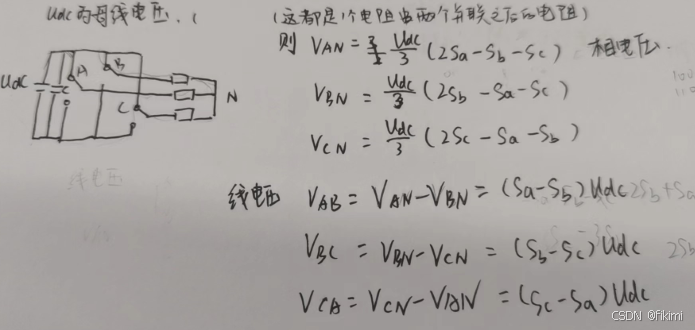 Udc为母线电压.(
(这都是1个电阻与两个并联之后的电阻)
则 VAN = Udc/3 (2Sa-Sb-Sc) 相电压.
VBN = Udc/3 (2Sb-Sa-Sc)
VCN = Udc/3 (2Sc-Sa-Sb)
Udc
A
B
C
N
线电压
线电压 VAB = VAN-VBN = (Sa-Sb)Udc 2Sb+Sa
VBC = VBN-VCN = (Sb-Sc)Udc 2Sb
VCA = VCN-VAN = (Sc-Sa)Udc
CSDN @fikimi